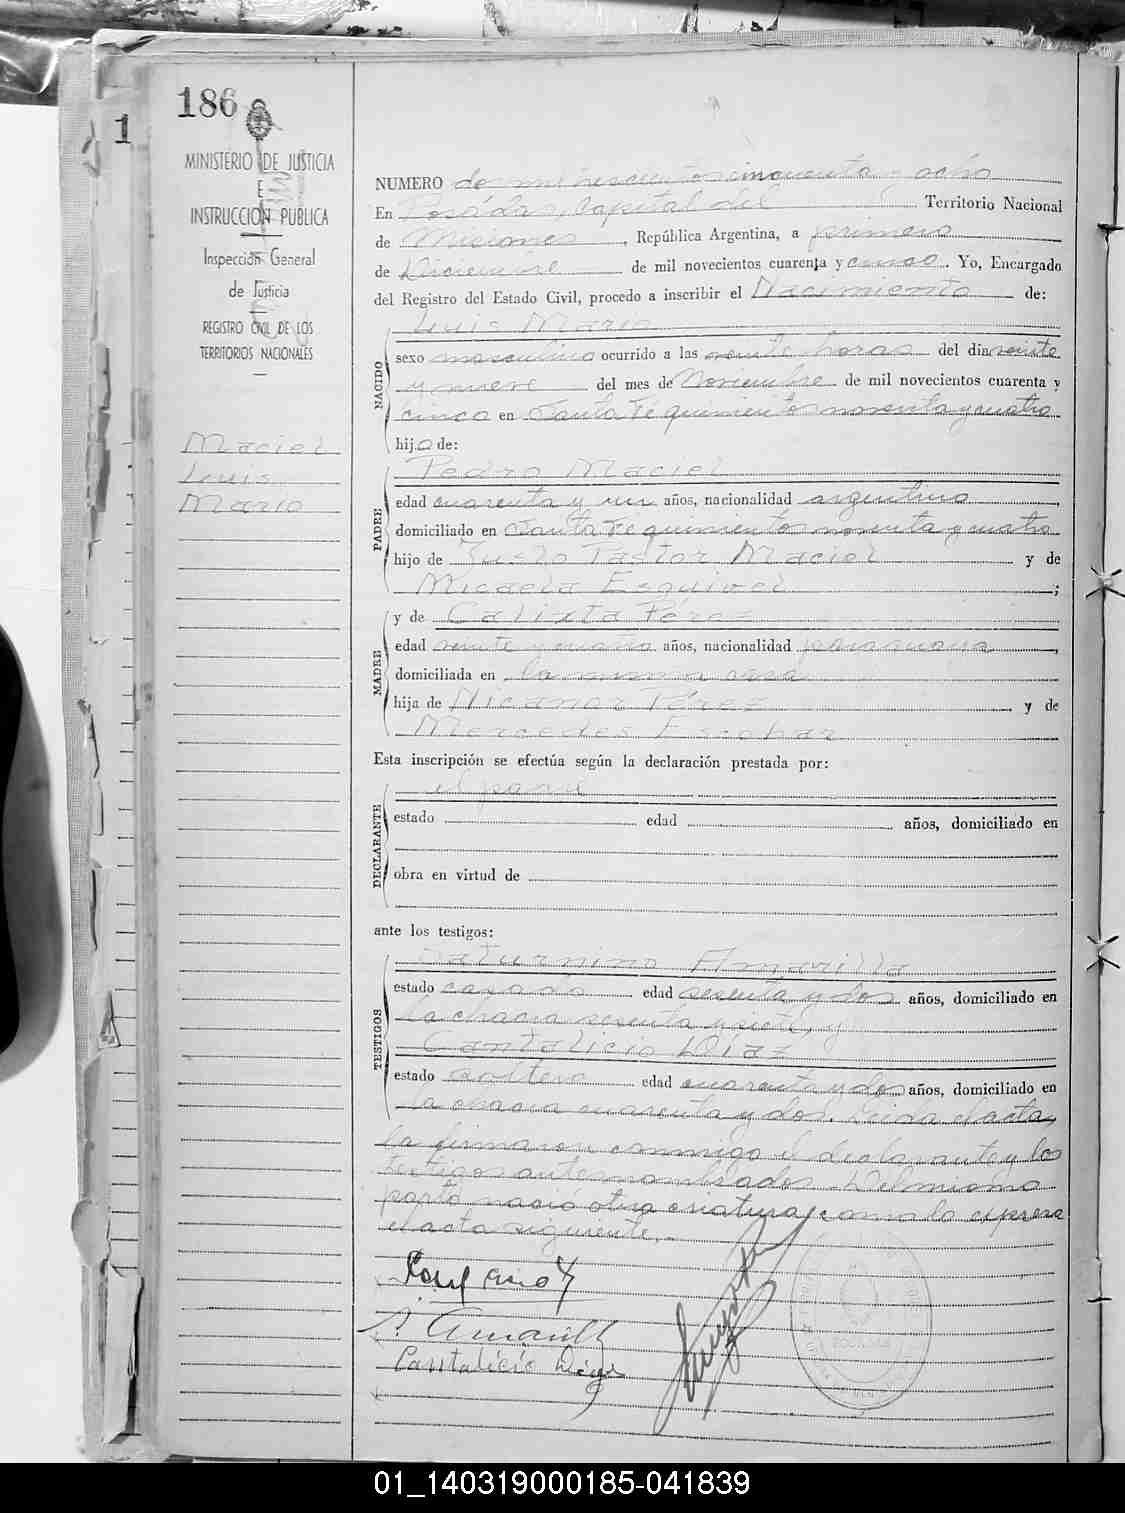 186
1
MINISTERIO DE JUSTICIA
E
INSTRUCCION PUBLICA
Inspección General
de Justicia
REGISTRO CIVIL DE LOS
TERRITORIOS NACIONALES
Maciel
Luis
Mario
NUMERO dos mil trescientos cincuenta y ocho
En Posadas, Capital del Territorio Nacional
de Misiones, República Argentina, a primero
de Diciembre de mil novecientos cuarenta y cinco. Yo, Encargado
del Registro del Estado Civil, procedo a inscribir el Nacimiento de:
NACIDO
Luis Mario
sexo masculino ocurrido a las veinte horas del dia veinte
y nueve del mes de Noviembre de mil novecientos cuarenta y
cinco en Santa Fe quinientos noventa y cuatro
hijo de:
PADRE
Pedro Maciel
edad cuarenta y un años, nacionalidad argentino
domiciliado en Santa Fe quinientos noventa y cuatro
hijo de Justo Pastor Maciel y de
Micaela Esquivel;
MADRE
y de Calixta Pérez
edad veinte y cuatro años, nacionalidad paraguaya,
domiciliada en la misma casa
hija de Nicanor Pérez y de
Mercedes Escobar
Esta inscripción se efectúa según la declaración prestada por:
DECLARANTE
el padre
estado edad años, domiciliado en
obra en virtud de
ante los testigos:
TESTIGOS
Saturnino Amarilla
estado casado edad sesenta y dos años, domiciliado en
la chacra sesenta y siete y
Cantalicio Díaz
estado soltero edad cuarenta y dos años, domiciliado en
la chacra cuarenta y dos. Leida el acta,
la firmaron conmigo el declarante y los
testigos antes nombrados. Del mismo
parto nació otra criatura, como lo expresa
el acta siguiente.
S. Amarilla
Cantalicio Díaz
01_140319000185-041839